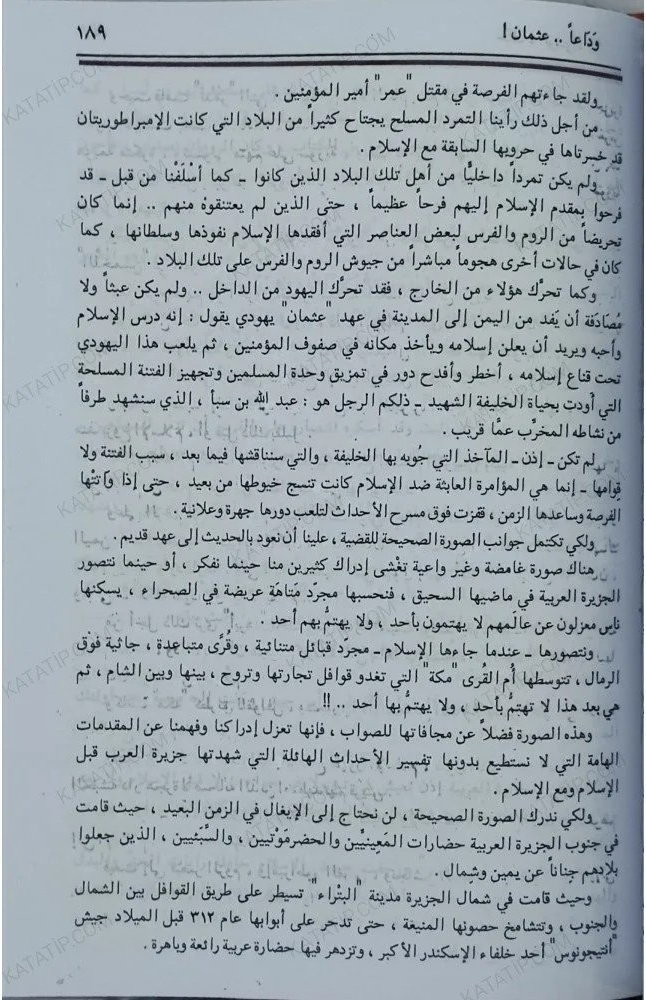 وَدَاعاً .. عثمان !
١٨٩
ولقد جاءتهم الفرصة في مقتل "عمر" أمير المؤمنين .
من أجل ذلك رأينا التمرد المسلح يجتاح كثيراً من البلاد التي كانت الإمبراطوريتان
قد خسرتاها في حروبها السابقة مع الإسلام .
ولم يكن تمرداً داخليًّا من أهل تلك البلاد الذين كانوا ـ كما أسْلَفْنا من قبل ـ قد
فرحوا بمقدم الإسلام إليهم فرحاً عظيماً ، حتى الذين لم يعتنقوه منهم .. إنما كان
تحريضاً من الروم والفرس لبعض العناصر التي أفقدها الإسلام نفوذها وسلطانها ، كما
كان في حالات أخرى هجوماً مباشراً من جيوش الروم والفرس على تلك البلاد .
وكما تحرَّك هؤلاء من الخارج ، فقد تحرَّك اليهود من الداخل .. ولم يكن عبثاً ولا
مُصَادَفة أن يَفد من اليمن إلى المدينة في عهد "عثمان" يهودي يقول : إنه درس الإسلام
وأحبه ويريد أن يعلن إسلامه ويأخذ مكانه في صفوف المؤمنين ، ثم يلعب هذا اليهودي
تحت قناع إسلامه ، أخطر وأفدح دور في تمزيق وحدة المسلمين وتجهيز الفتنة المسلحة
التي أودت بحياة الخليفة الشهيد ـ ذلكم الرجل هو : عبد الله بن سبأ ، الذي سنشهد طرفاً
من نشاطه المخرِّب عمَّا قريب .
لم تكن ـ إذن ـ المآخذ التي جُوبه بها الخليفة ، والتي سنناقشها فيما بعد ، سبب الفتنة ولا
قِوامها ـ إنما هي المؤامرة العابثة ضد الإسلام كانت تنسج خيوطها من بعيد ، حتى إذا وَاتتْها
الفرصة وساعدها الزمن ، قفزت فوق مسرح الأحداث لتلعب دورها جهرة وعلانية .
ولكي تكتمل جوانب الصورة الصحيحة للقضية ، علينا أن نعود بالحديث إلى عهد قديم .
هناك صورة غامضة وغير واعية تغْشى إدراك كثيرين منا حينما نفكر ، أو حينما نتصور
الجزيرة العربية في ماضيها السحيق ، فنحسبها مجرّد مَتاهَة عريضة في الصحراء ، يسكنها
ناس معزلون عن عالَمهم لا يهتمون بأحد ، ولا يهتمُّ بهم أحد .
ونتصورها ـ عندما جاءها الإسلام ـ مجرّد قبائل متنائية ، وقُرًى متباعِدة ، جاثية فوق
الرمال ، تتوسطها أُم القُرى "مكة" التي تغدو قوافل تجارتها وتروح ، بينها وبين الشام ، ثم
هي بعد هذا لا تهتمُّ بأحد ، ولا يهتمُّ بها أحد .. !!
وهذه الصورة فضلاً عن مجافاتها للصواب ، فإنها تعزل إدراكنا وفهمنا عن المقدمات
الهامة التي لا نستطيع بدونها تفسير الأحداث الهائلة التي شهدتها جزيرة العرب قبل
الإسلام ومع الإسلام .
ولكي ندرك الصورة الصحيحة ، لن نحتاج إلى الإيغال في الزمن البَعيد ، حيث قامت
في جنوب الجزيرة العربية حضارات المَعِينيِّين والحضرمَوْتيين ، والسَّبَئيين ، الذين جعلوا
بلادهم جناناً عن يمين وشِمال .
وحيث قامت في شمال الجزيرة مدينة "البتْراء" تسيطر على طريق القوافل بين الشمال
والجنوب ، وتتشامخ حصونها المنيعة ، حتى تدحر على أبوابها عام ٣١٢ قبل الميلاد جيش
"أنتيجونوس" أحد خلفاء الإسكندر الأكبر ، وتزدهر فيها حضارة عربية رائعة وباهرة .
KATATIP.COM